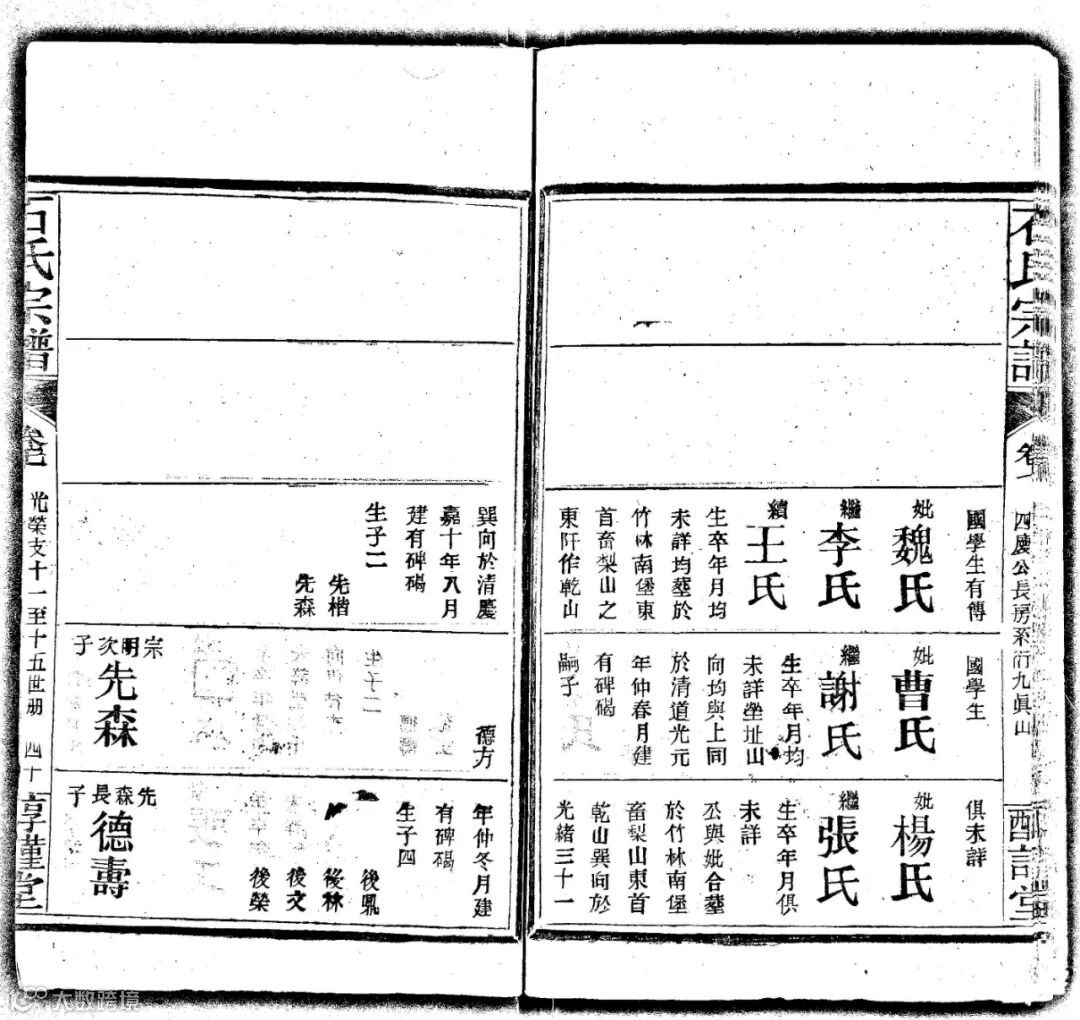 石氏宗譜
四慶公長房系行九眞山
國學生有傳
妣魏氏
繼李氏
續王氏
生卒年月均
未詳均塟於
竹林南堡東
首畜梨山之
東阡作乾山
國學生
妣曹氏
繼謝氏
生卒年月均
未詳坐址山
向均與上同
於清道光元
年仲春月建
有碑碣
嗣子
俱未詳
妣楊氏
繼張氏
生卒年月俱
未詳
公與妣合塟
於竹林南堡
畜梨山東首
乾山巽向於
光緒三十一
巽向於清慶
嘉十年八月
建有碑碣
生子二
先楷
先森
德方
宗明次子
先森
年仲冬月建
有碑碣
生子四
後林
後文
後榮
先森長子
德壽
石氏宗譜
光榮支十一至十五世册
四十
惇謹堂
大数跨境